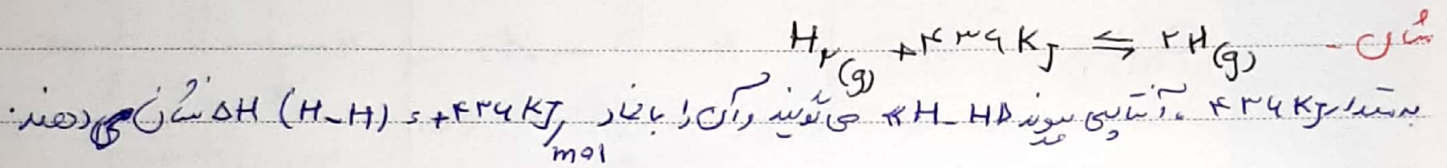 مثال - H₂(g) + ۴۳۶ KJ ⇌ ۲H(g)
به مقدار ۴۳۶ KJ، آنتالپی پیوند «H-H» می‌گویند و آن را با نماد ΔH (H-H) = +۴۳۶ KJ/mol نشان می‌دهند.